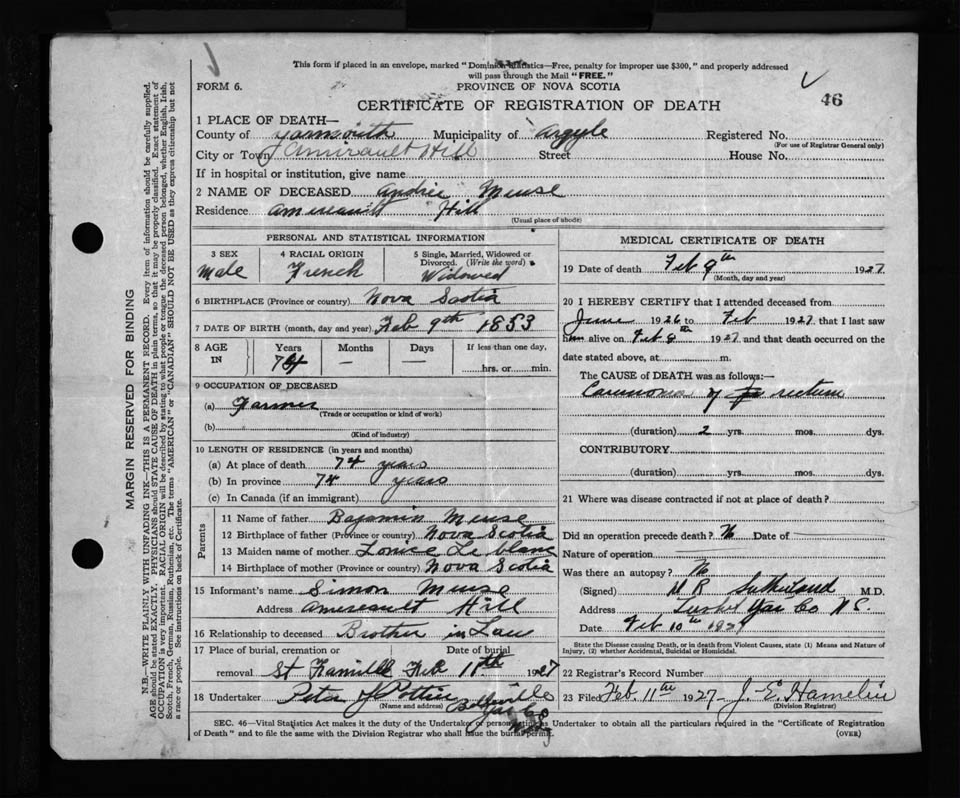 This form if placed in an envelope, marked "Dominion Statistics—Free, penalty for improper use $300," and properly addressed
will pass through the Mail "FREE."
FORM 6.
PROVINCE OF NOVA SCOTIA
CERTIFICATE OF REGISTRATION OF DEATH
46
1 PLACE OF DEATH—
County of Yarmouth Municipality of Argyle Registered No.
(For use of Registrar General only)
City or Town Amirault Hill Street House No.
If in hospital or institution, give name
2 NAME OF DECEASED Andrie Meuse
Residence Amereault Hill
(Usual place of abode)
PERSONAL AND STATISTICAL INFORMATION
3 SEX 4 RACIAL ORIGIN 5 Single, Married, Widowed or
Divorced. (Write the word)
Male French Widowed
6 BIRTHPLACE (Province or country) Nova Scotia
7 DATE OF BIRTH (month, day and year) Feb 9th 1853
8 AGE IN Years Months Days If less than one day,
74 — — hrs. or min.
9 OCCUPATION OF DECEASED
(a) Farmer
(Trade or occupation or kind of work)
(b)
(Kind of industry)
10 LENGTH OF RESIDENCE (in years and months)
(a) At place of death 74 years
(b) In province 74 years
(c) In Canada (if an immigrant)
Parents
11 Name of father Bajamin Meuse
12 Birthplace of father (Province or country) Nova Scotia
13 Maiden name of mother Louise Le blanc
14 Birthplace of mother (Province or country) Nova Scotia
15 Informant's name Simon Meuse
Address Amereault Hill
16 Relationship to deceased Brother in Law
17 Place of burial, cremation or Date of burial
removal St Famille Feb 11th 1927
18 Undertaker Peter J Pottier Belleville
(Name and address) Yar Co
MEDICAL CERTIFICATE OF DEATH
19 Date of death Feb 9th 1927
(Month, day and year)
20 I HEREBY CERTIFY that I attended deceased from
June 1926 to Feb 1927 that I last saw
him alive on Feb 8th 1927 and that death occurred on the
date stated above, at m.
The CAUSE OF DEATH was as follows:—
Carcinoma of rectum
(duration) 2 yrs. mos. dys.
CONTRIBUTORY
(duration) yrs. mos. dys.
21 Where was disease contracted if not at place of death?
Did an operation precede death? No Date of
Nature of operation
Was there an autopsy? No
(Signed) Sutherland M.D.
Address Tusket Yar Co N.S.
Date Feb 10th 1927
State the Disease causing Death, or in death from Violent Causes, state (1) Means and Nature of
Injury, (2) whether Accidental, Suicidal or Homicidal.
22 Registrar's Record Number
23 Filed Feb. 11th 1927 J. E. Hamelin
(Division Registrar)
SEC. 46—Vital Statistics Act makes it the duty of the Undertaker or person acting as Undertaker to obtain all the particulars required in the "Certificate of Registration
of Death" and to file the same with the Division Registrar who shall issue the burial permit.
(OVER)
MARGIN RESERVED FOR BINDING
N.B.—WRITE PLAINLY WITH UNFADING INK—THIS IS A PERMANENT RECORD. Every item of information should be carefully supplied.
AGE should be stated EXACTLY. PHYSICIANS should STATE CAUSE OF DEATH in plain terms, so that it may be properly classified. Exact statement of
OCCUPATION is very important. RACIAL ORIGIN will be described by stating to what people or tongue the deceased person belonged, whether English, Irish,
Scotch, French, German, Russian, Ruthenian, etc. The terms "AMERICAN" or "CANADIAN" SHOULD NOT BE USED as they express citizenship but not
a race or people. See instructions on back of Certificate.